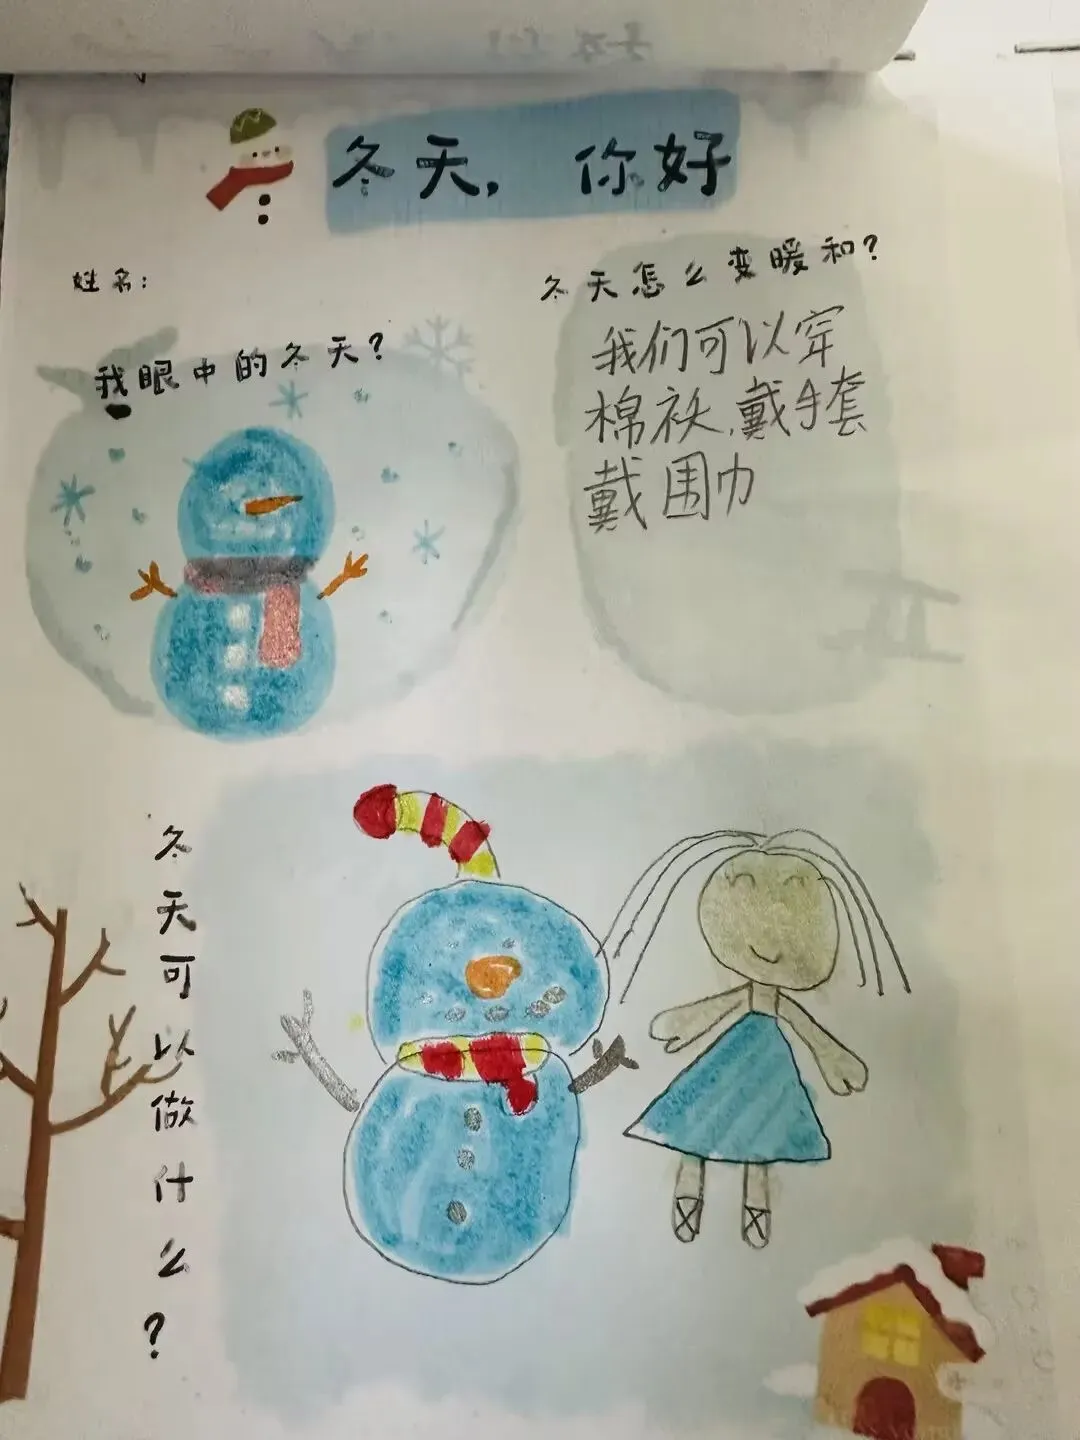 冬天，你好
姓名：
我眼中的冬天？
冬天怎么变暖和？
我们可以穿
棉袄,戴手套
戴围巾
冬天可以做什么？